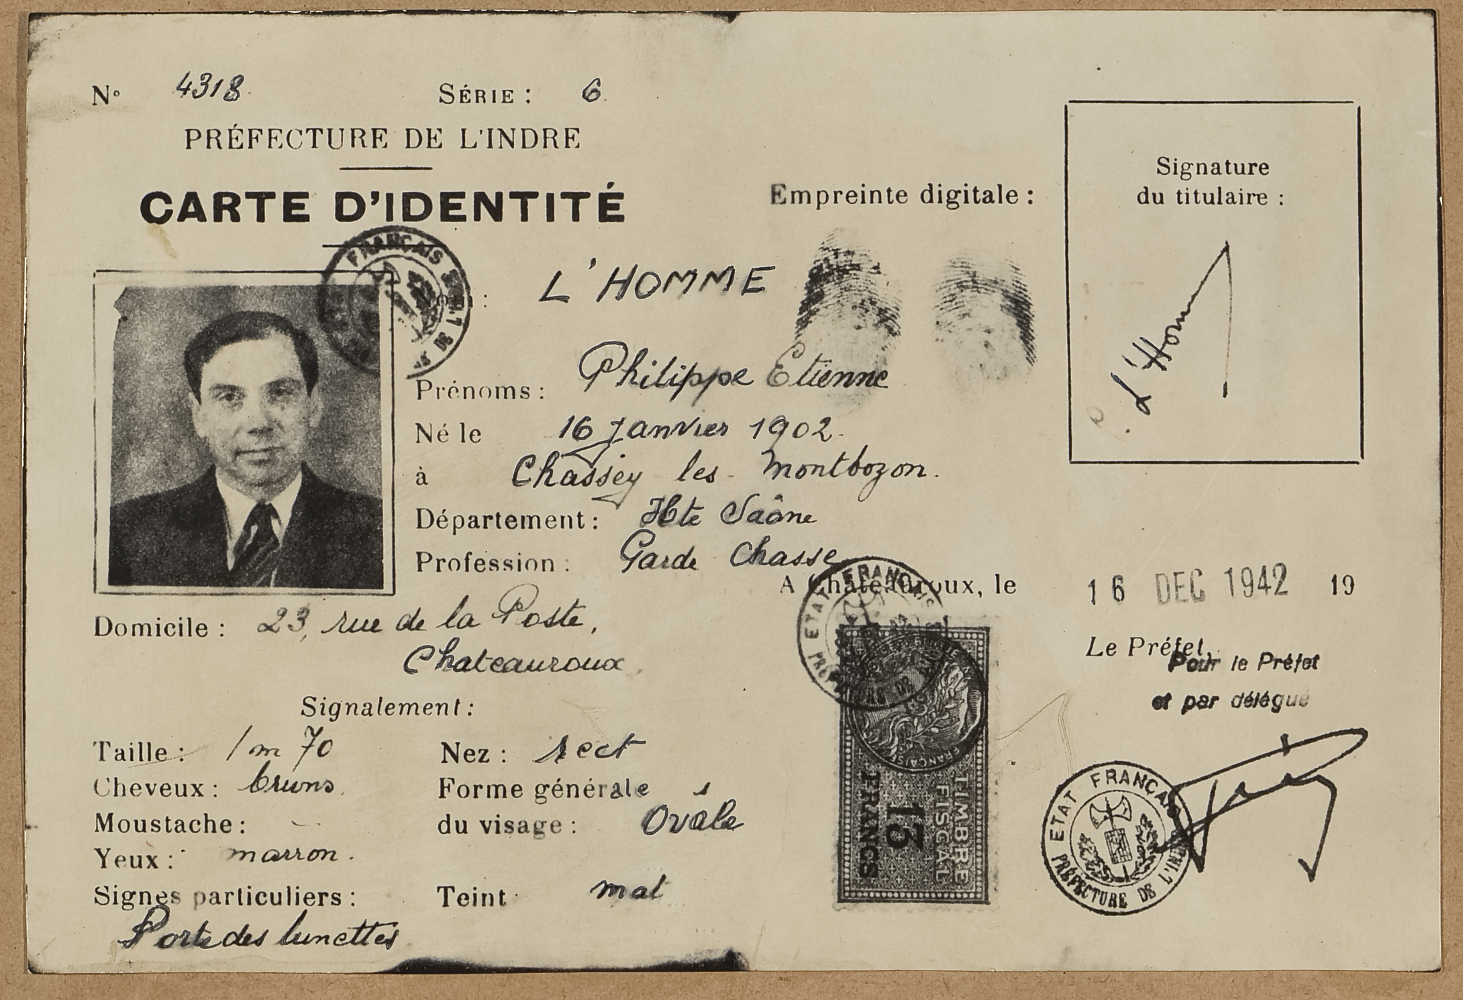 N° 4318 SÉRIE : 6
PRÉFECTURE DE L'INDRE
CARTE D'IDENTITÉ
L'HOMME
Prénoms : Philippe Etienne
Né le 16 Janvier 1902.
à Chassey les Montbozon.
Département : Hte Saône
Profession : Garde chasse
Domicile : 23, rue de la Poste,
Chateauroux
Signalement :
Taille : 1m 70
Cheveux : bruns
Moustache : -
Yeux : marron.
Signes particuliers :
Porte des lunettes
Nez : rect
Forme générale
du visage : Ovale
Teint mat
Empreinte digitale :
Signature
du titulaire :
L'Homme
A Châteauroux, le 16 DEC 1942 19
Le Préfet,
Pour le Préfet
et par délégué
ETAT FRANÇAIS
PRÉFECTURE DE L'INDRE
TIMBRE
FISCAL
13
FRANCS